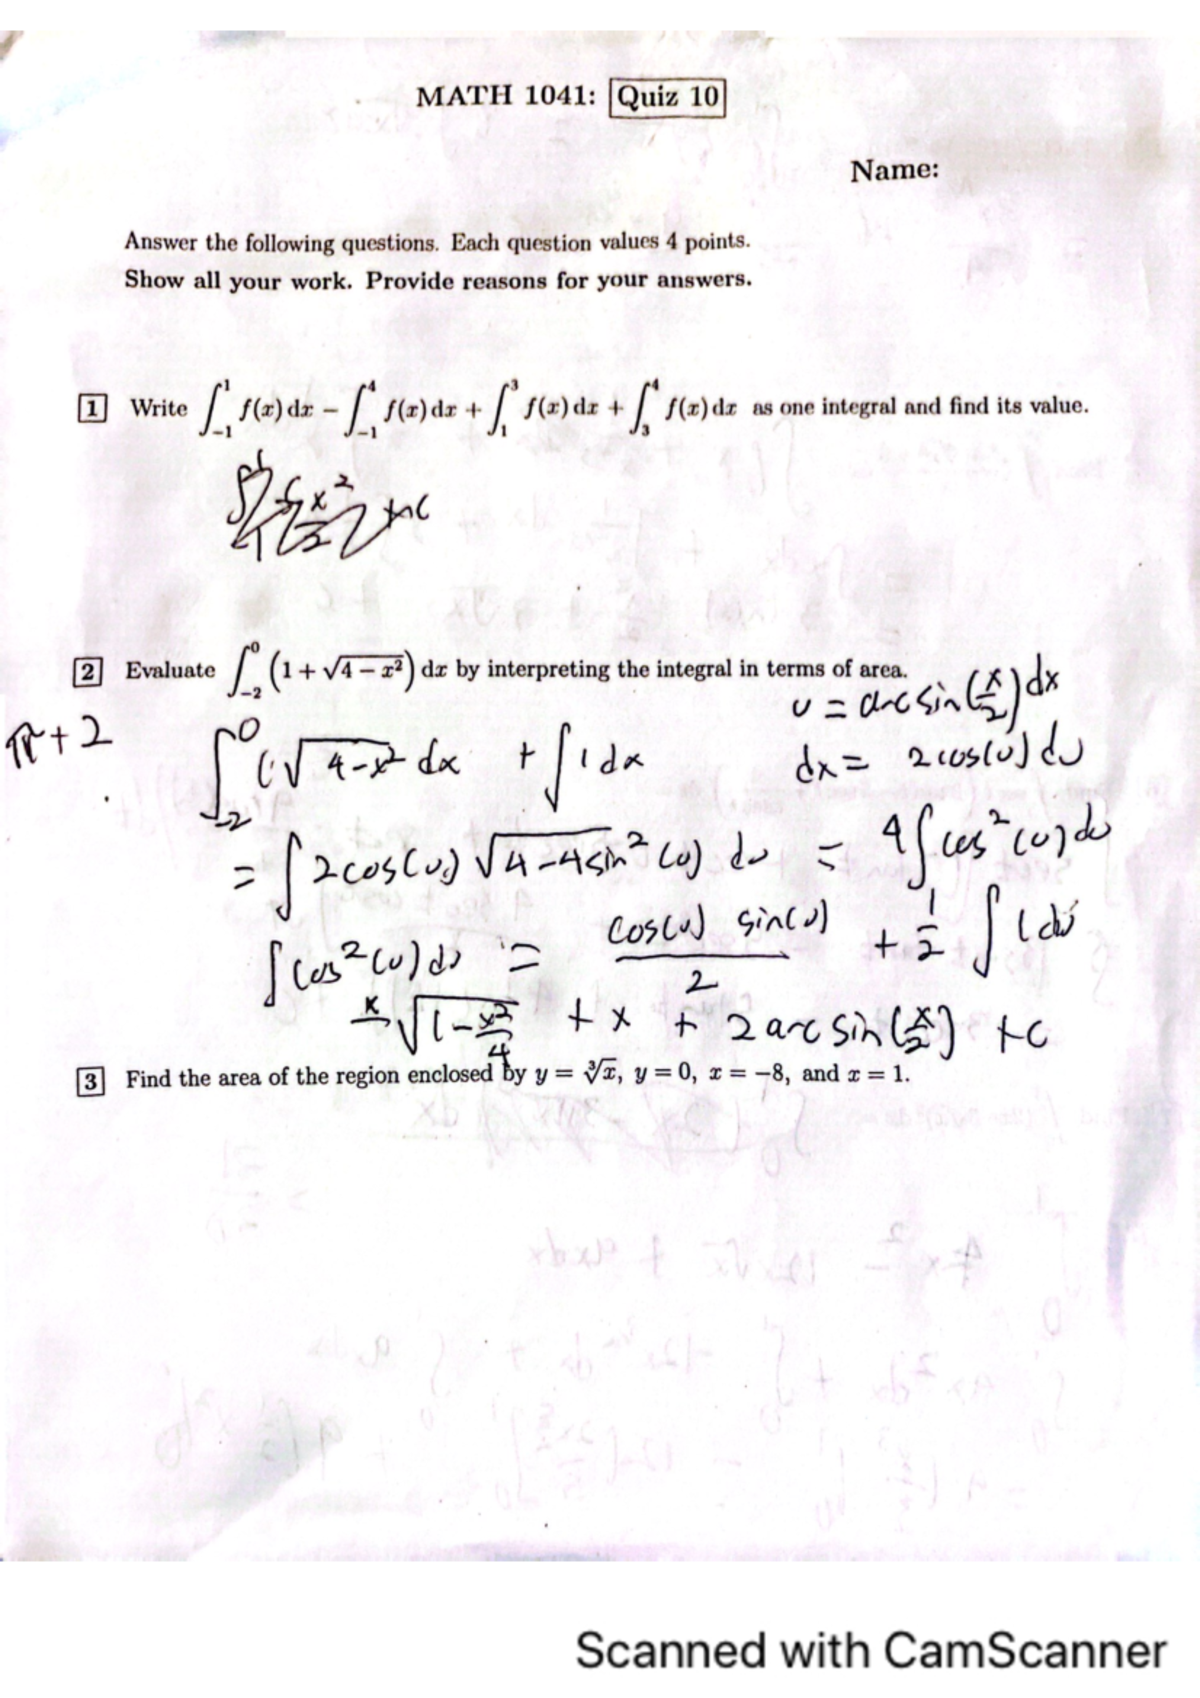 MATH 1041: Quiz 10
Name:
Answer the following questions. Each question values 4 points.
Show all your work. Provide reasons for your answers.
1 Write ∫_{-1}^{1} f(x) dx − ∫_{-1}^{4} f(x) dx + ∫_{1}^{3} f(x) dx + ∫_{3}^{4} f(x) dx as one integral and find its value.
2 Evaluate ∫_{-2}^{0} (1 + √(4 − x²)) dx by interpreting the integral in terms of area.
u = arcsin(x/2) dx
π + 2
∫_{-2}^{0} (√(4-x²) dx + ∫ 1 dx
dx = 2cos(u) du
= ∫ 2cos(u) √(4-4sin²(u)) du = 4∫cos²(u) du
∫cos²(u) du = cos(u) sin(u)/2 + 1/2 ∫ 1 du
x √(1-x²/4) + x + 2 arcsin(x/2) + c
3 Find the area of the region enclosed by y = ∛x, y = 0, x = −8, and x = 1.
Scanned with CamScanner